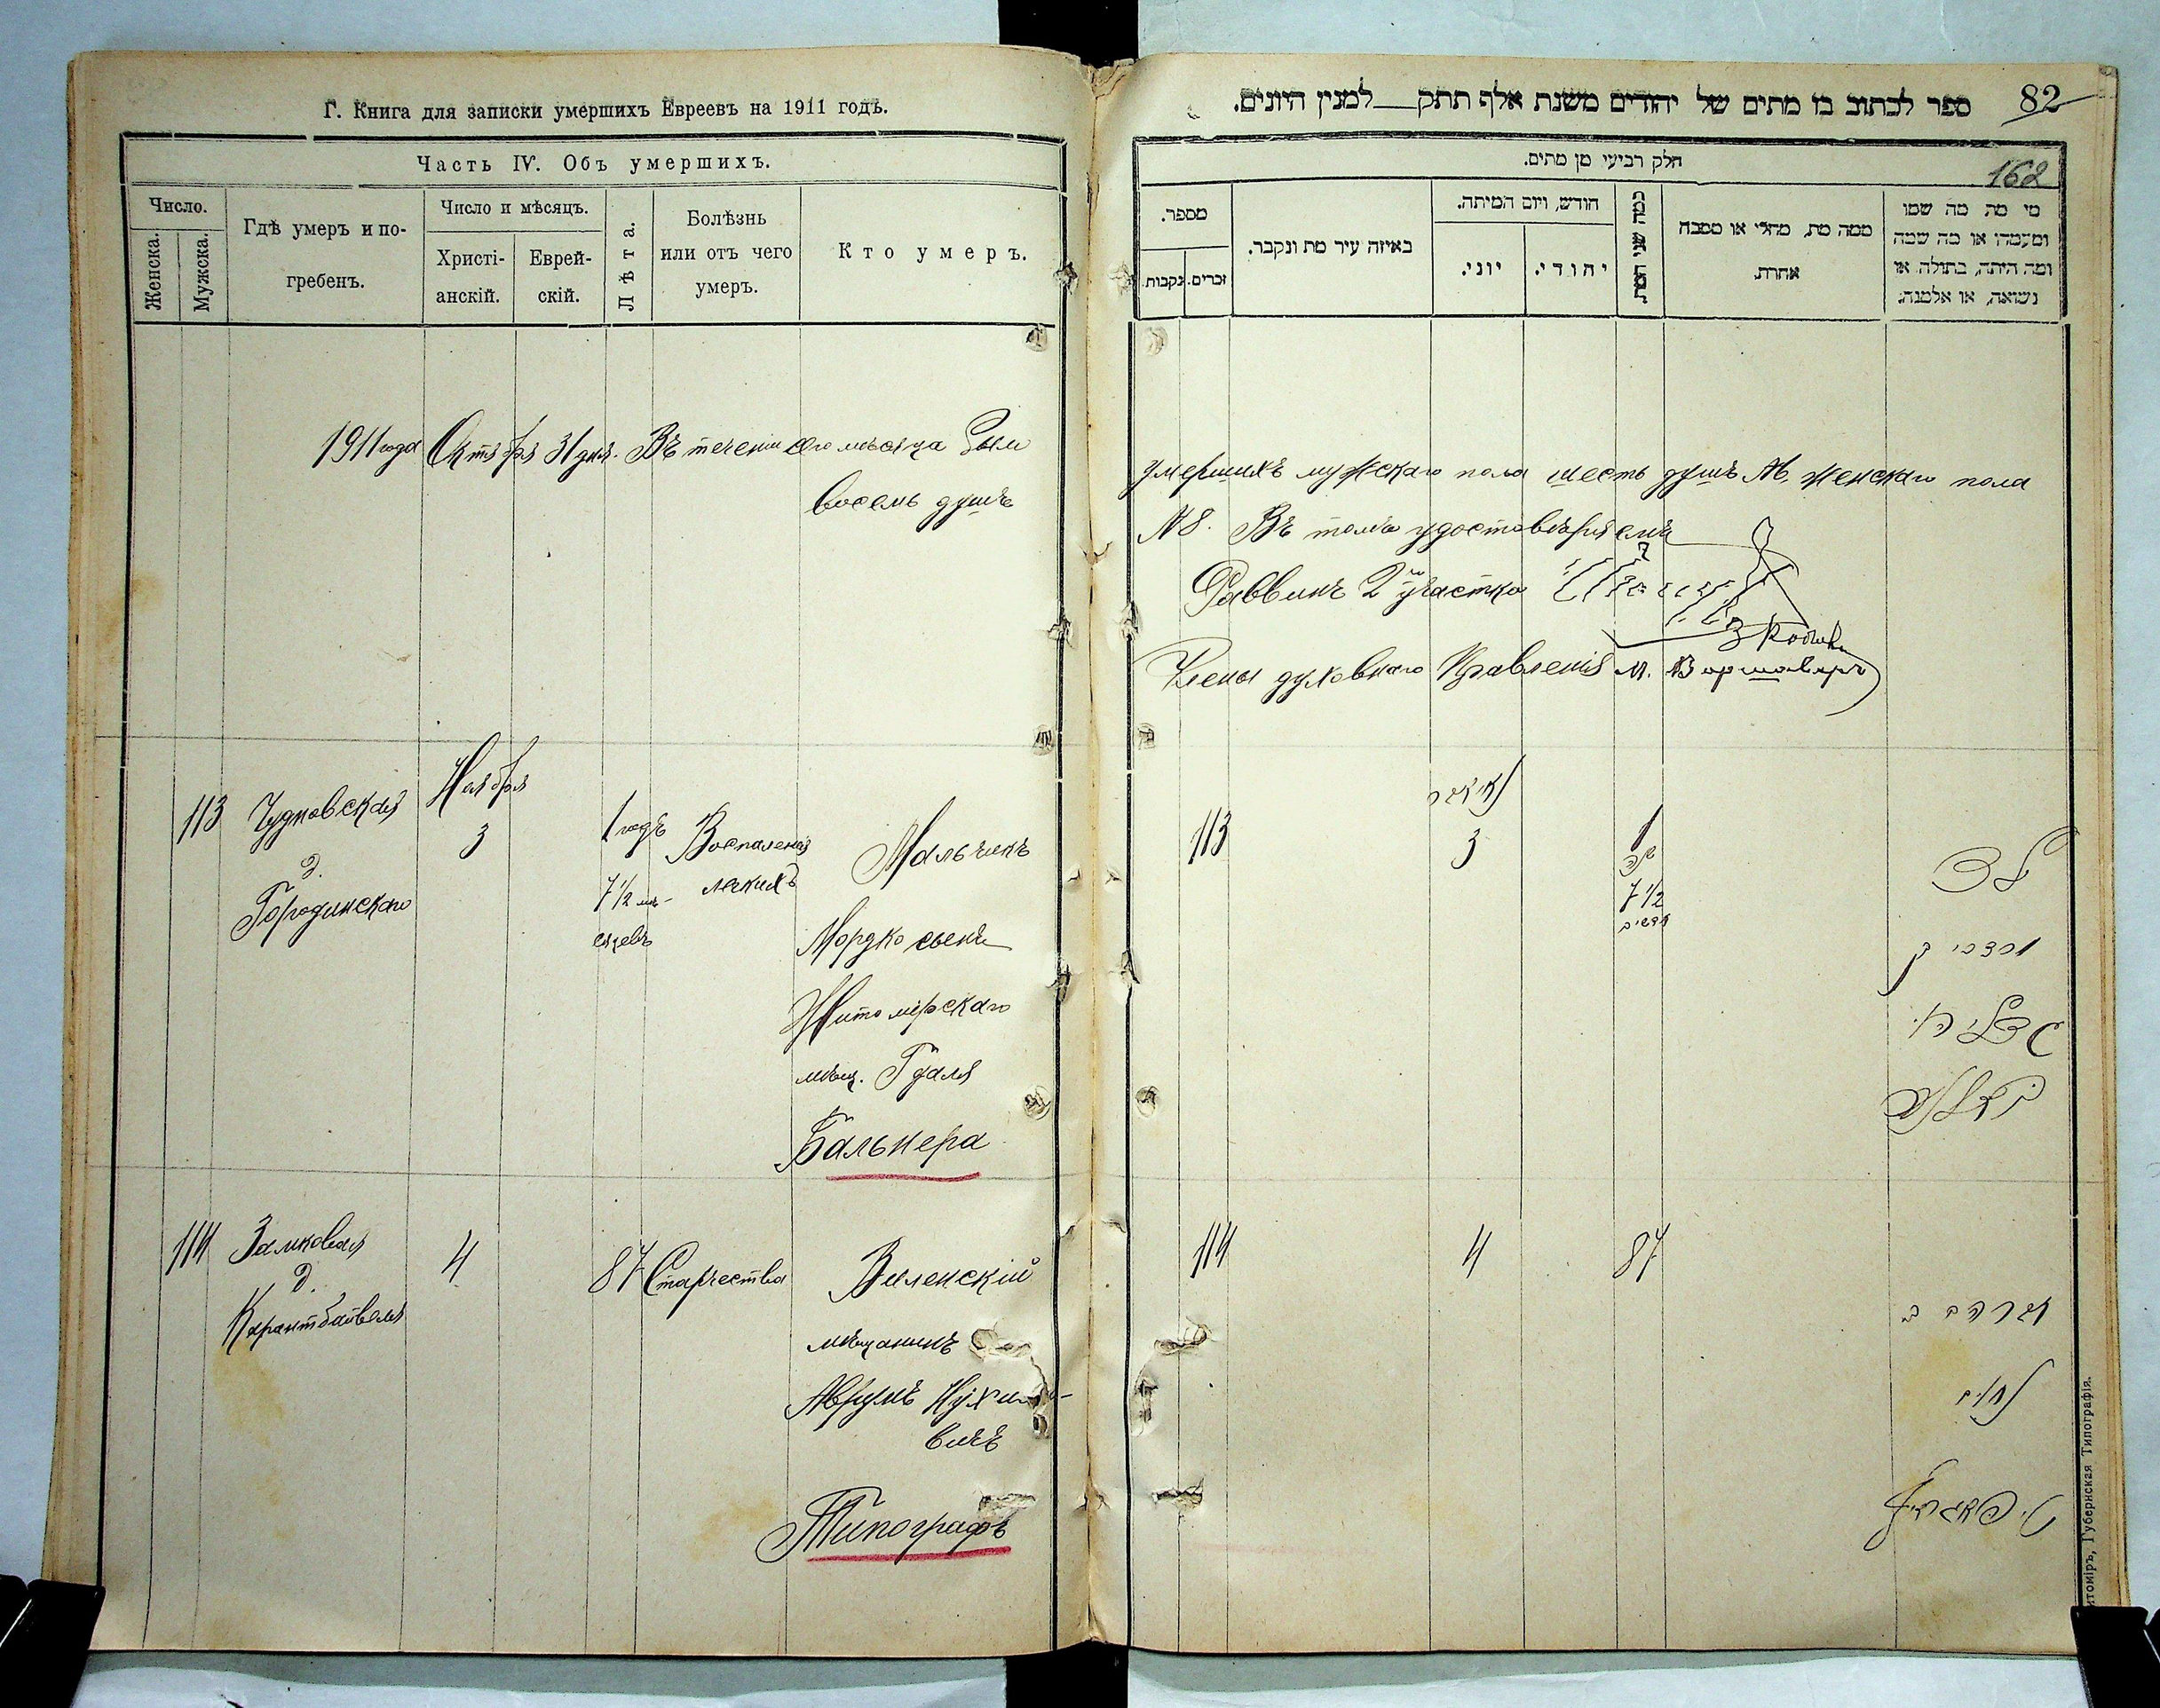 Г. Книга для записки умершихъ Евреевъ на 1911 годъ.
Часть IV. Объ умершихъ.
Число.
Женска.
Мужска.
Гдѣ умеръ и по-
гребенъ.
Число и мѣсяцъ.
Христі-
анскій.
Еврей-
скій.
Лѣта.
Болѣзнь
или отъ чего
умеръ.
Кто умеръ.
1911 года Октября 31 дня. Въ теченіи сего мѣсяца было
восемь душъ
113
Чудновская
д.
Городинскаго
Ноября
3
1 годъ
7 1/2 мѣ-
сяцевъ
Воспаленія
легкихъ
Мальчикъ
Мордко сынъ
Житомірскаго
мѣщ. Гдаля
Бальнера
114
Замковая
д.
4
87
Старчества
Виленскій
мѣщанинъ
Аврумъ
вичъ
Типографъ
82
ספר לכתוב בו מתים של יהודים משנת אלף תתק למנין היונים.
162
חלק רביעי מן מתים.
מספר.
נקבות
זכרים.
באיזה עיר מת ונקבר.
חודש, ויום המיתה.
יוני.
יהודי.
כמה שני המת.
ממה מת, מחלי או מסבה
אחרת.
מי מת מה שמו
ומעמדו או מה שמה
ומה היתה, בתולה או
נשואה, או אלמנה.
умершихъ мужскаго пола шесть душъ А. женскаго пола
№ 8. Въ томъ удостовѣряемъ
Раввинъ 2го участка
Члены духовнаго Правленія М. Варшаверъ
113
3
1
7 1/2
חדשים
ילד
מרדכי בן
גדליהו
114
4
87
אברהם ב
נחום
טיפאגראף
Житоміръ, Губернская Типографія.